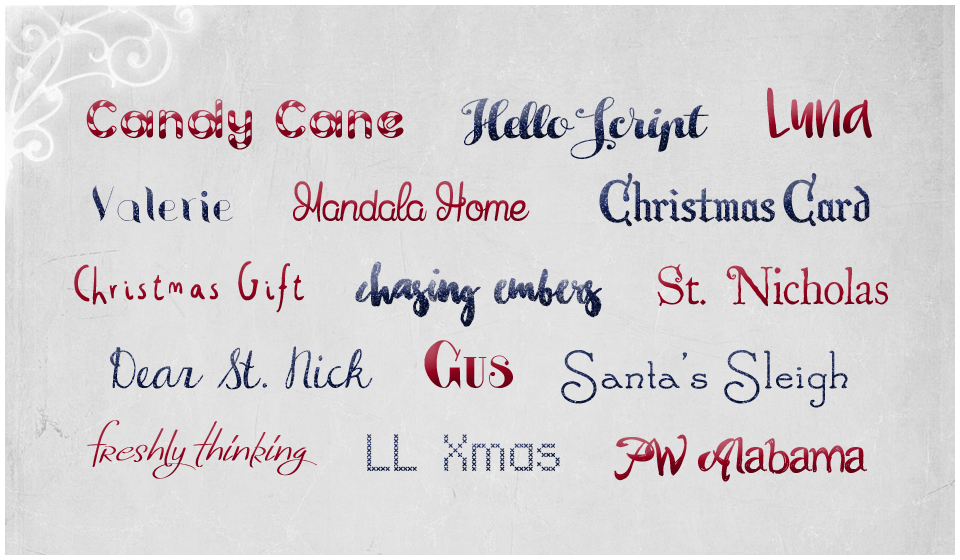 Candy Cane Hello Script Luna
Valerie Mandala Home Christmas Card
Christmas Gift chasing embers St. Nicholas
Dear St. Nick Gus Santa's Sleigh
freshly thinking LL Xmas PW Alabama